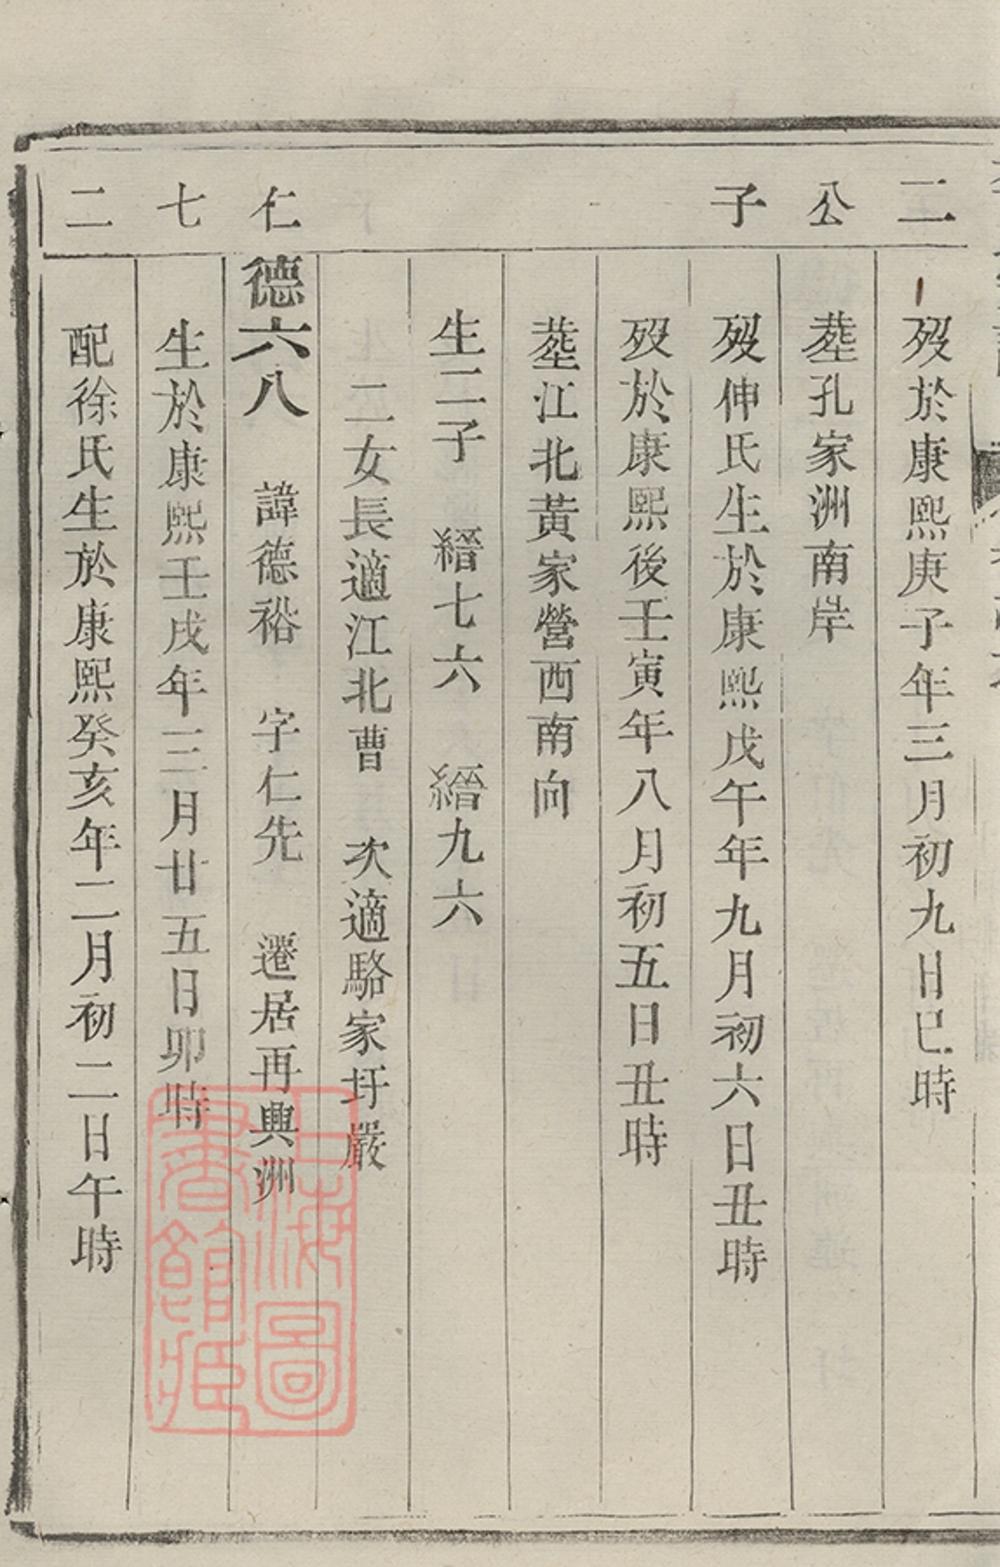 二 歿於康熙庚子年三月初九日巳時
公 塟孔家洲南岸
子 歿伸氏生於康熙戊午年九月初六日丑時
歿於康熙後壬寅年八月初五日丑時
塟江北黃家營西南向
生二子 縉七六 縉九六
二女長適江北曹 次適駱家圩嚴
仁 德六八 諱德裕 字仁先 遷居再興洲
七 生於康熙壬戌年三月廿五日卯時
二 配徐氏生於康熙癸亥年二月初二日午時
上海圖書館藏